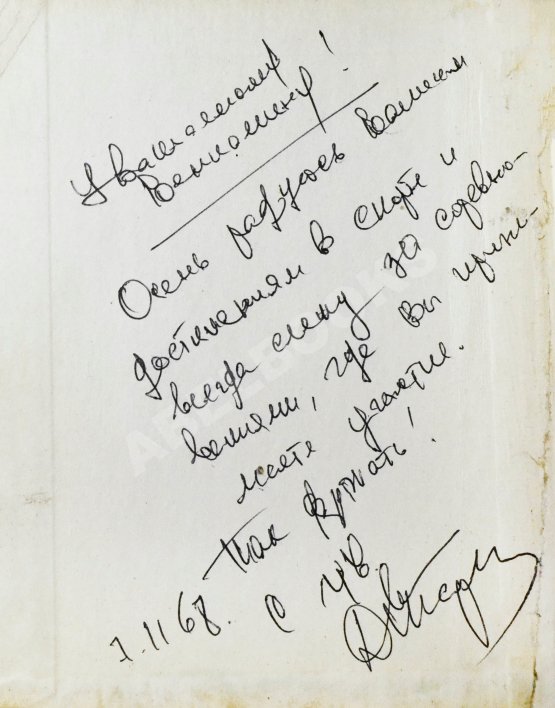 Уважаемому
Вениамину!
Очень радуюсь Вашим
достижениям в спорте и
всегда слежу за соревно-
ваниями, где вы прини-
маете участие.
Так держать!
С ув.
7.11 68.